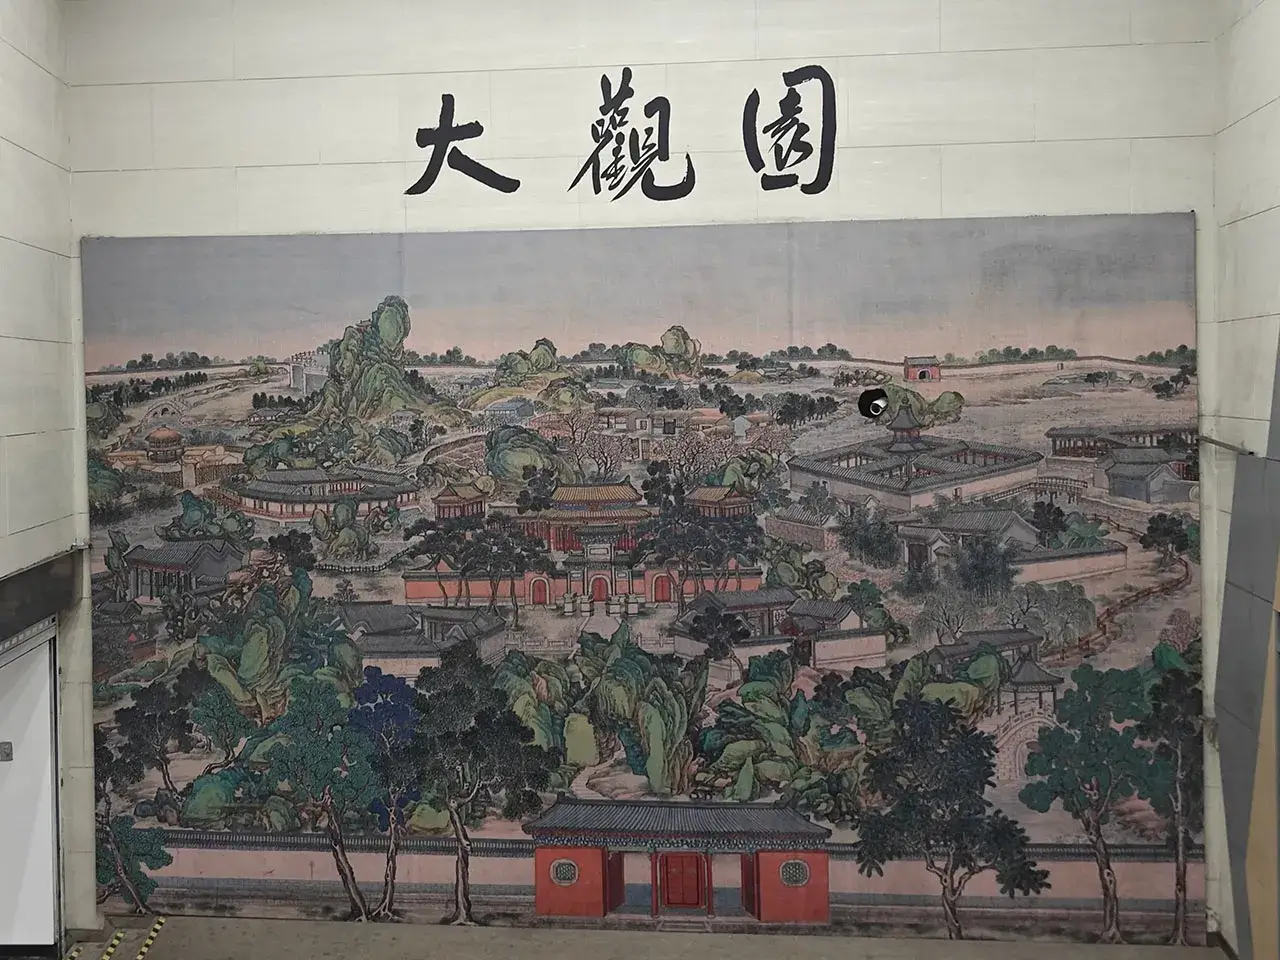 大觀園